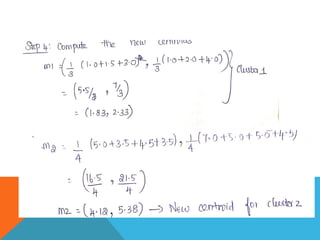 Step 4: Compute the new centroids
m1 = ( 1/3 (1.0+1.5+3.0), 1/3 (1.0+2.0+4.0) ) } cluster 1
= (5.5/3, 7/3)
= (1.83, 2.33)
m2 = 1/4 (5.0+3.5+4.5+3.5), 1/4 (7.0+5.0+5.0+4.5)
= (16.5/4, 21.5/4)
m2 = (4.12, 5.38) → New centroid for cluster 2